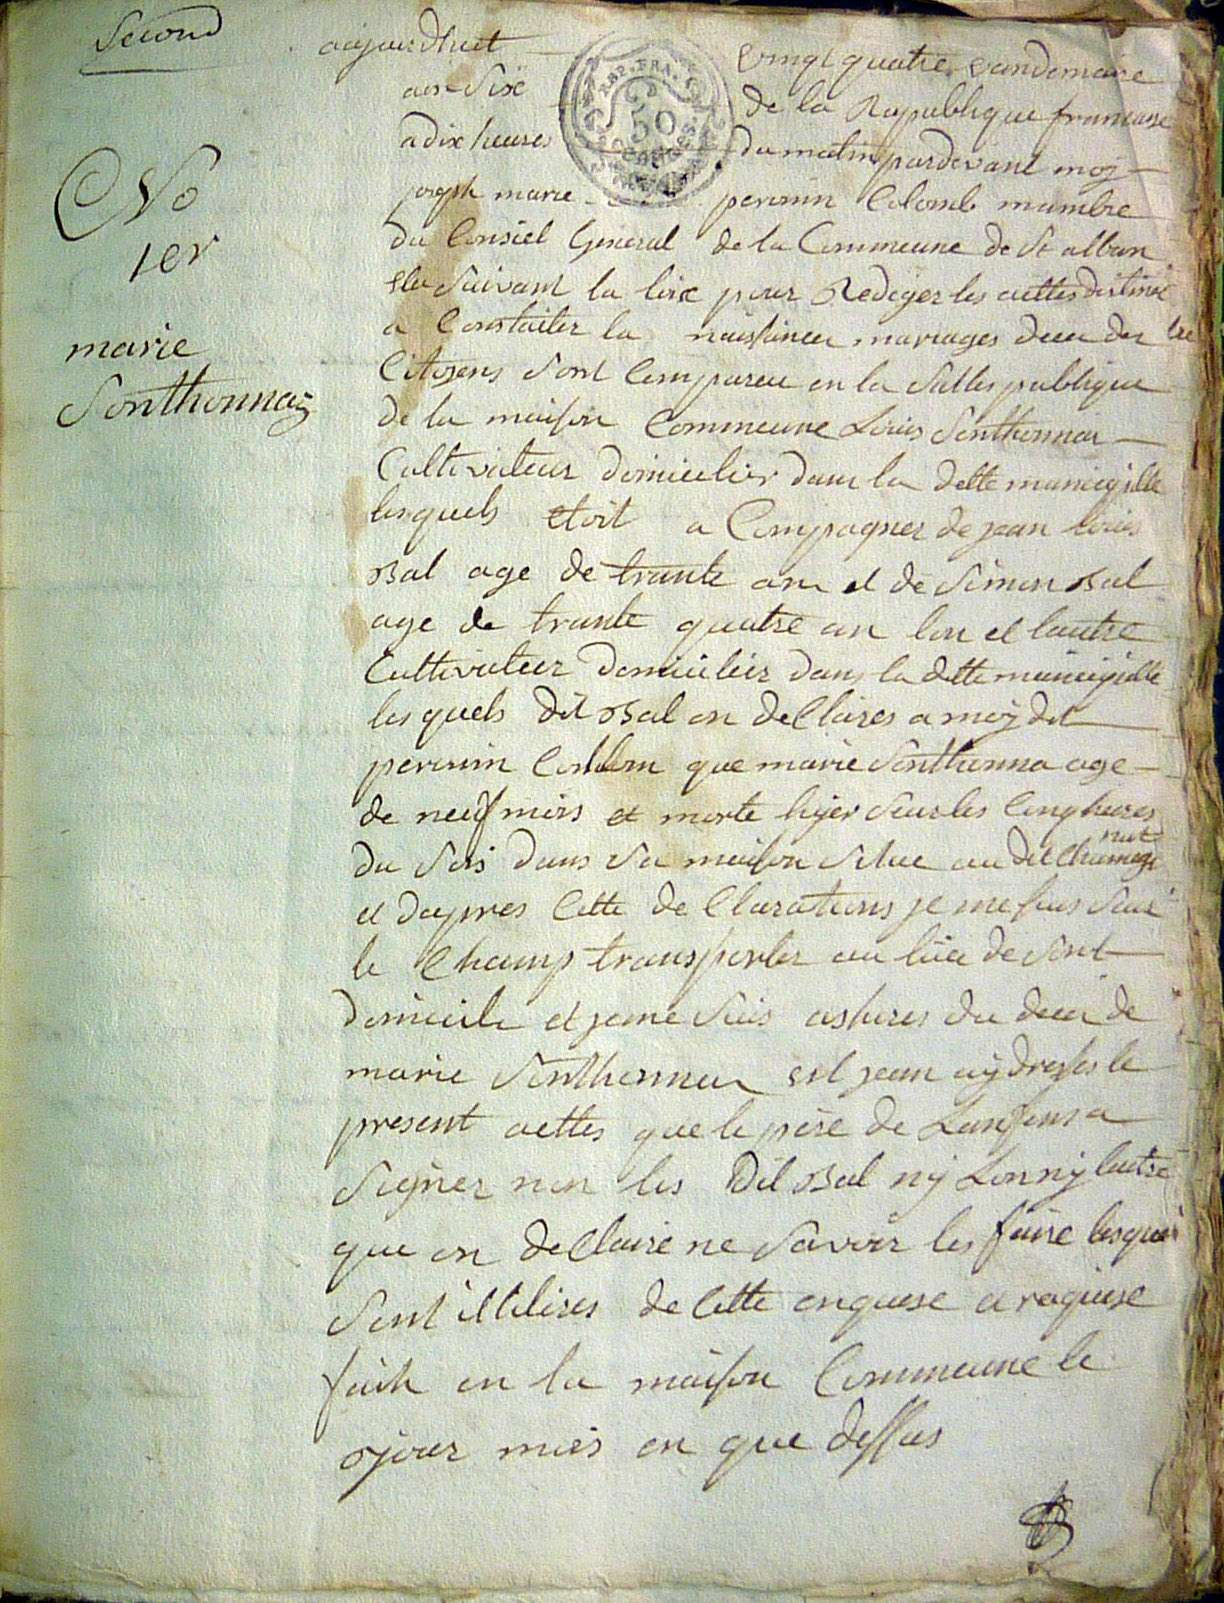 Second
No
1er
marie
Sonthonnaz
REP. FRA.
50
CENTIMES.
aujourdhuit vingt quatre vandemaire
an Six de la Republique francaise
a dix heures du matin pardevant moy
joseph marie perrnin Colomb mambre
du Consiel General de la Commeune de St alban
elu Suivant la loix pour Redeger les acttes distiné
a Constater la naissance mariages deces des
Citoyens Sont Comparue en la Salles publique
de la maison Commeune Louis Sonthonna
Cultivateur domicelier dans la dette municipallite
lesquels etoit a Compagner de jean louis
Bal age de trante ans et de Simon Bal
age de trante quatre an lon et lautre
Cultivateur domicielier dans la dette municipallite
les quels dit Bal on de Claires a moy dit
perrnin Collom que marie Sonthonna age
de neuf mois et morte hyer Sur les Cinq heures
du Soir dans Sa maison Situe au dit Chamagnat
et dapres Cette de Clarations je me suis Sur
le Champ transporter au lieu de Sont
domicile et je me Suis assures du deces de
marie Sonthonna est jean ay dresses le
present acttes que le père de Lanfens a
Signer non les dit Bal ny Lon ny lautre
que on de Claire ne Savoir les faire lesques
Sont de Cette enquese a requise
fait en la maison Commeune le
jour mois en que dessus